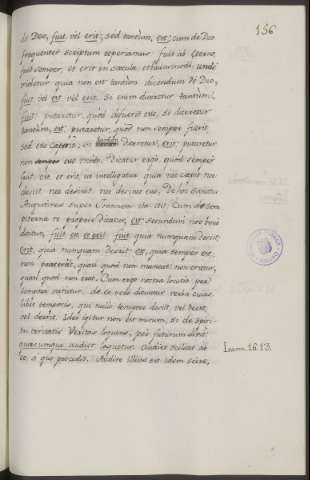 156
de Deo, fuit vel erit; sed tantùm, est; cum de Deo
frequenter scriptum reperiamus fuit ab æterno,
fuit semper, et erit in sæcula sæculorum, unde
videtur quia non est tantùm dicendum de Deo,
fuit vel est vel erit. Si enim diceretur tantùm,
fuit; putaretur, quòd desierit esse, si diceretur
tantùm, est putaretur, quòd non semper fuerit,
sed esse cœperit, si tantùm diceretur, erit, putaretur
non esse modo. Dicatur ergo quòd semper
fuit, est et erit, ut intelligatur quia nec cœpit nec
desiit nec desinit nec desinet esse. De hoc
Augustinus super Joannem ita ait. Cum de sem-
piterna re propriè dicatur, est secundùm nos benè
dicitur, fuit et erit. fuit quia nunquam desiit
erit, quia nunquam deerit est, quia semper est,
non præteriit, quasi quod non maneat non orietur,
quasi quod non erat. Cum ergo nostra locutio per
tempora varietur, de eo verè dicuntur verba cujus-
libet temporis, qui nullo tempore defuit, vel deest,
vel deerit. Ideò igitur non est mirum, si de Spiri-
tu veritatis Veritas loquens, per futurum dixit:
quæcumque audiet loquetur. Audiet scilicet ab
eo, a quo procedit. Audire illius est idem scire,
Ioann. 16.13.